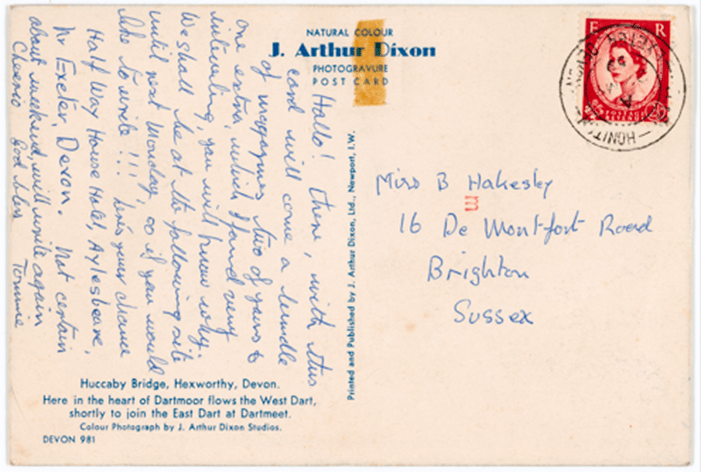 NATURAL COLOUR
J. Arthur Dixon
PHOTOGRAVURE
POST CARD
Hallo! there, with this
card will come a bundle
of magazines two of yours &
one extra, which I found very
interesting, you will know why.
We shall be at the following site
until next Monday, so if you would
like to write!!! here's your chance
Half Way House Hotel, Aylesbeare,
Nr Exeter, Devon. Not certain
about weekend, will write again
Cheerio God bless
Tommie
Huccaby Bridge, Hexworthy, Devon.
Here in the heart of Dartmoor flows the West Dart,
shortly to join the East Dart at Dartmeet.
Colour Photograph by J. Arthur Dixon Studios.
DEVON 981
Printed and Published by J. Arthur Dixon, Ltd., Newport, I.W.
E R
HONITON
DEVON
Miss B Hakesley
16 De Montfort Road
Brighton
Sussex